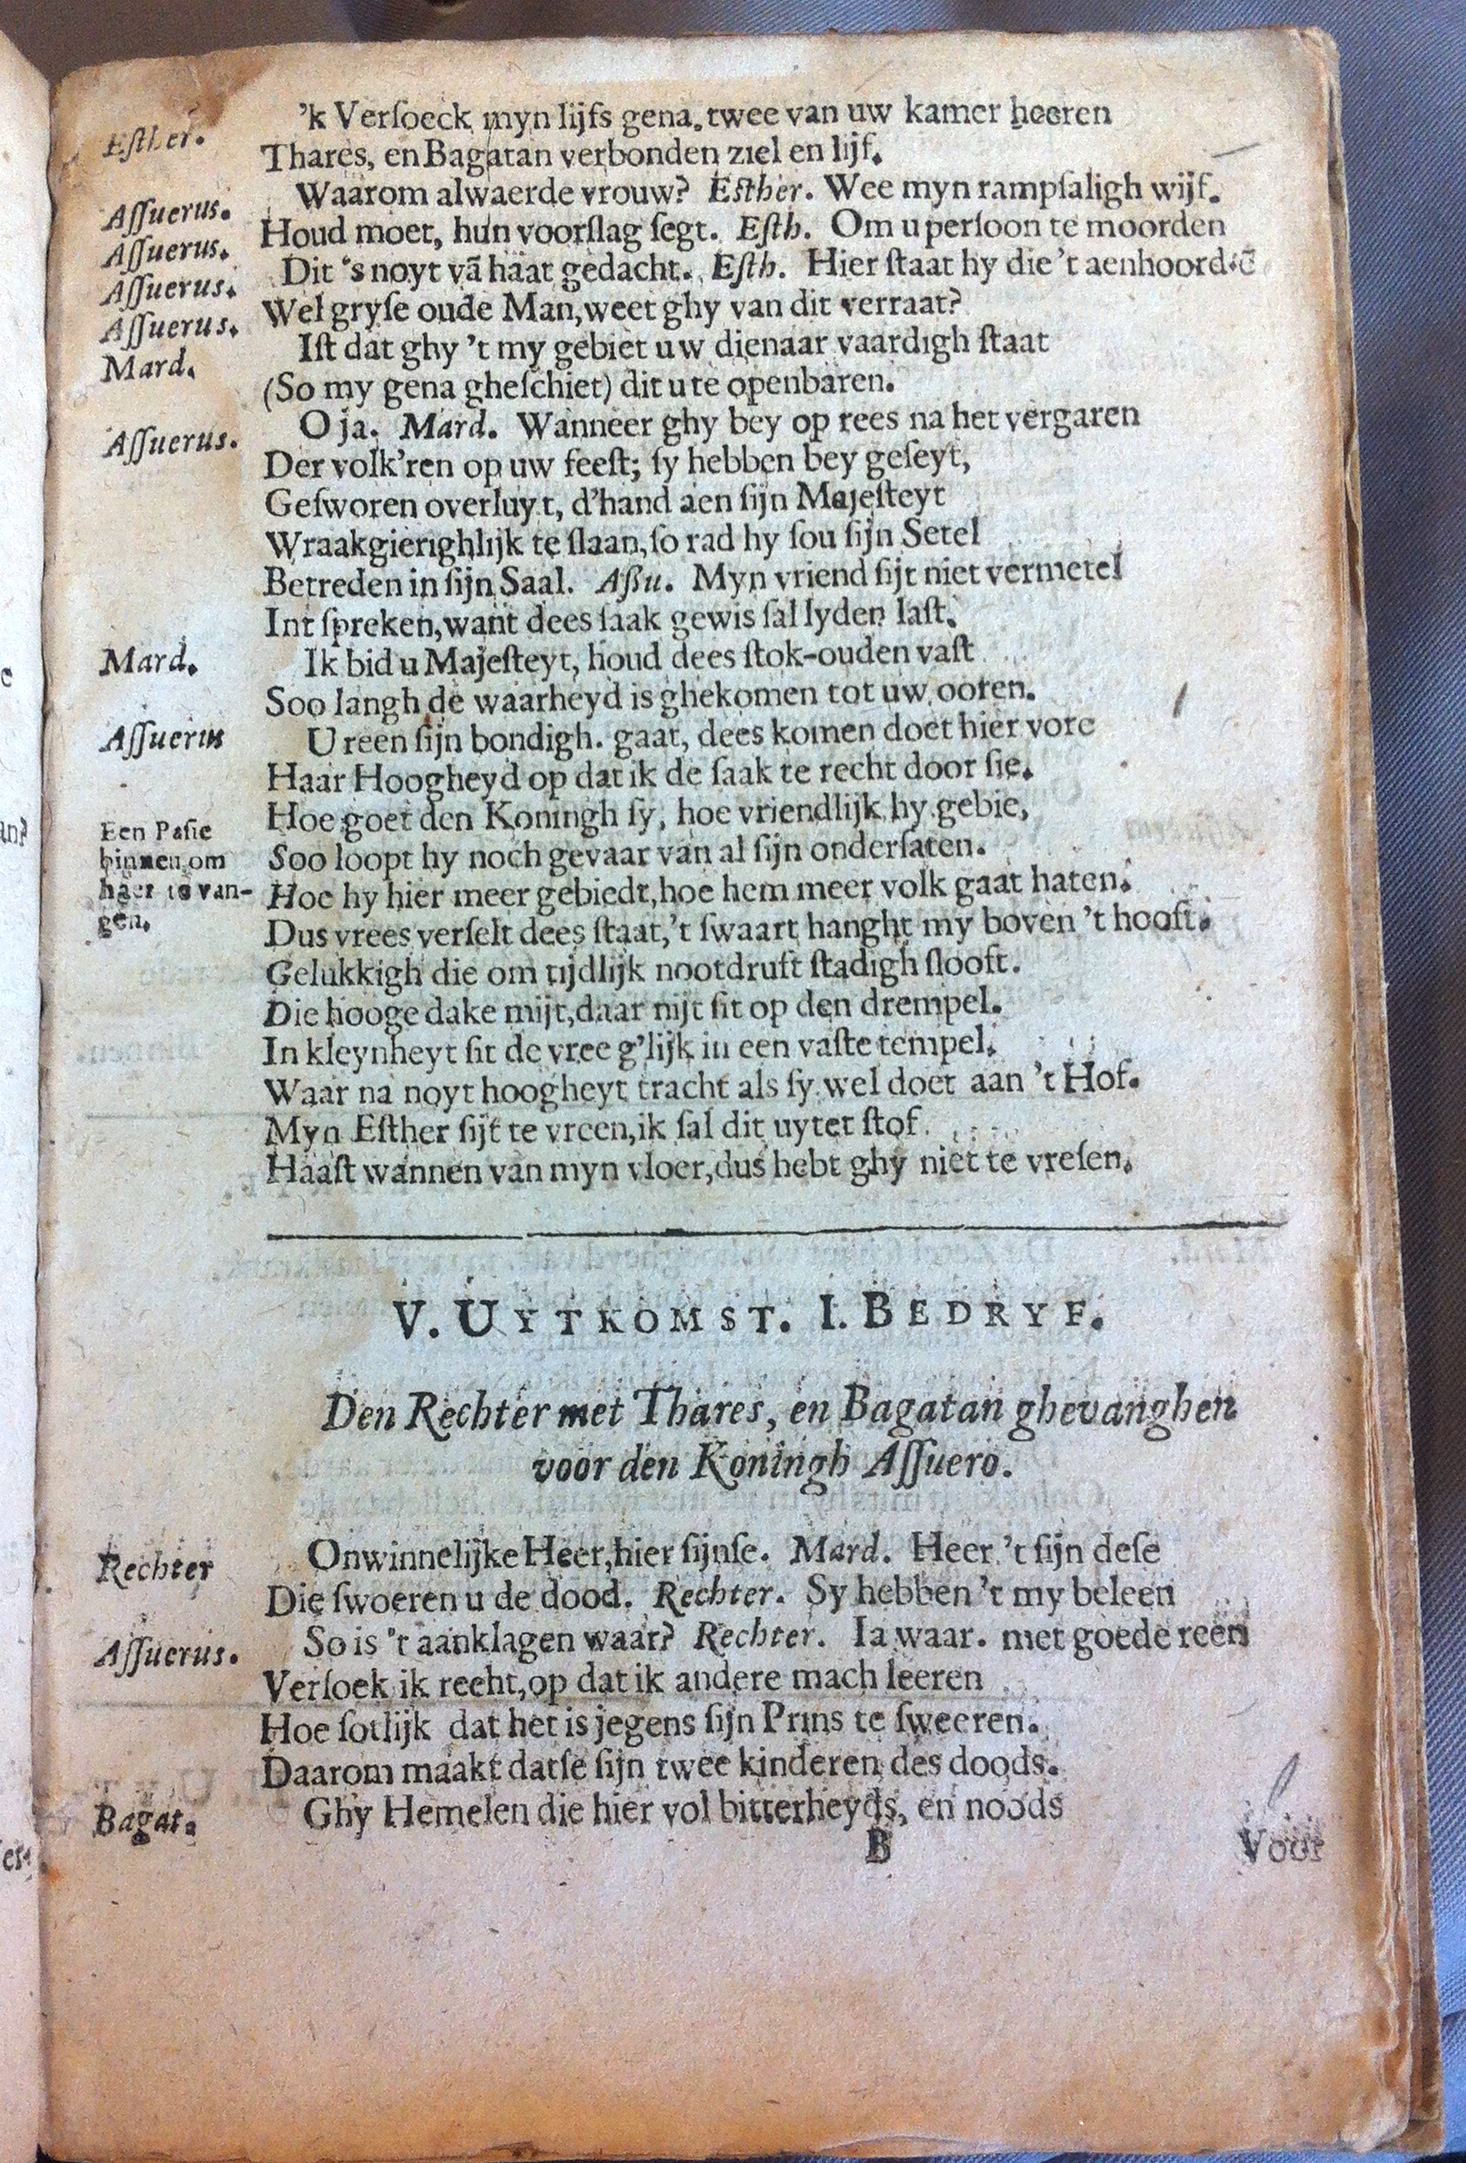 Esther. 'k Verſoeck myn lijfs gena, twee van uw kamer heeren
Thares, en Bagatan verbonden ziel en lijf.
Aſſuerus. Waarom alwaerde vrouw? Esther. Wee myn rampſaligh wijf.
Aſſuerus. Houd moet, hun voorſlag ſegt. Eſth. Om u perſoon te moorden
Aſſuerus. Dit 's noyt vā haat gedacht. Eſth. Hier ſtaat hy die 't aenhoordē
Aſſuerus. Wel gryſe oude Man, weet ghy van dit verraat?
Mard. Iſt dat ghy 't my gebiet uw dienaar vaardigh ſtaat
(So my gena gheſchiet) dit u te openbaren.
Aſſuerus. O ja. Mard. Wanneer ghy bey op rees na het vergaren
Der volk'ren op uw feeſt; ſy hebben bey geſeyt,
Geſworen overluyt, d'hand aen ſijn Majeſteyt
Wraakgierighlijk te ſlaan, ſo rad hy ſou ſijn Setel
Betreden in ſijn Saal. Aßu. Myn vriend ſijt niet vermetel
Int ſpreken, want dees ſaak gewis ſal lyden laſt.
Mard. Ik bid u Majeſteyt, houd dees ſtok-ouden vaſt
Soo langh de waarheyd is ghekomen tot uw ooren.
Aſſuerus U reen ſijn bondigh. gaat, dees komen doet hier vore
Haar Hoogheyd op dat ik de ſaak te recht door ſie.
Hoe goet den Koningh ſy, hoe vriendlijk hy gebie,
Een Paſie
binnen om
haer te van-
gen.
Soo loopt hy noch gevaar van al ſijn onderſaten.
Hoe hy hier meer gebiedt, hoe hem meer volk gaat haten.
Dus vrees verſelt dees ſtaat, 't ſwaart hanght my boven 't hooft.
Gelukkigh die om tijdlijk nootdruft ſtadigh ſlooft.
Die hooge dake mijt, daar nijt ſit op den drempel.
In kleynheyt ſit de vree g'lijk in een vaſte tempel.
Waar na noyt hoogheyt tracht als ſy wel doet aan 't Hof.
Myn Eſther ſijt te vreen, ik ſal dit uytet ſtof
Haaſt wannen van myn vloer, dus hebt ghy niet te vreſen.
V. UYTKOMST. I. BEDRYF.
Den Rechter met Thares, en Bagatan ghevanghen
voor den Koningh Aſſuero.
Rechter Onwinnelijke Heer, hier ſijnſe. Mard. Heer 't ſijn deſe
Die ſwoeren u de dood. Rechter. Sy hebben 't my beleen
Aſſuerus. So is 't aanklagen waar? Rechter. Ia waar. met goede reen
Verſoek ik recht, op dat ik andere mach leeren
Hoe ſotlijk dat het is jegens ſijn Prins te ſweeren.
Daarom maakt datſe ſijn twee kinderen des doods.
Bagat. Ghy Hemelen die hier vol bitterheyds, en noods
B
Voor